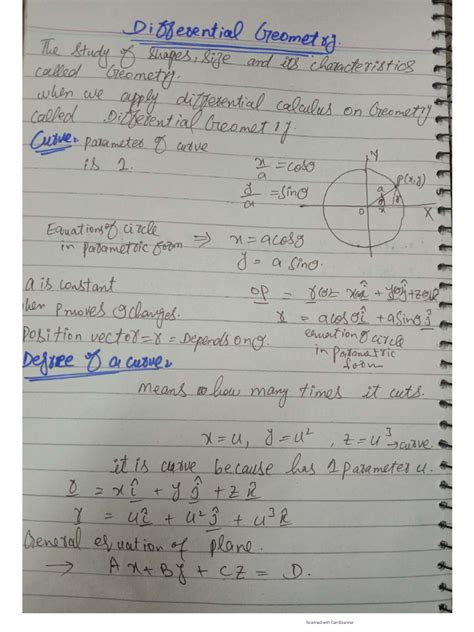 Differential Geometry.
The study of shapes, size and its characteristics
called Geometry.
when we apply differential calculus on Geometry
called Differential Geometry.
Curve: parameter of curve
is 1.
x/a = cosθ
y/a = sinθ
Y
P(x,y)
a
y
θ
O
x
X
Equations of circle
in parametric form ⇒ x = a cosθ
y = a sinθ.
a is constant
when P moves θ changes.
Position vector = r = Depends on θ.
OP = r or xî + yĵ + zk̂
r = a cosθ î + a sinθ ĵ
equation of circle
in parametric
form
Degree of a curve:
Means how many times it cuts.
x = u, y = u², z = u³ → curve.
it is curve because has 1 parameter u.
r = xî + yĵ + zk̂
r = uî + u²ĵ + u³k̂
General equation of plane.
→ Ax + By + Cz = D.
Scanned with CamScanner